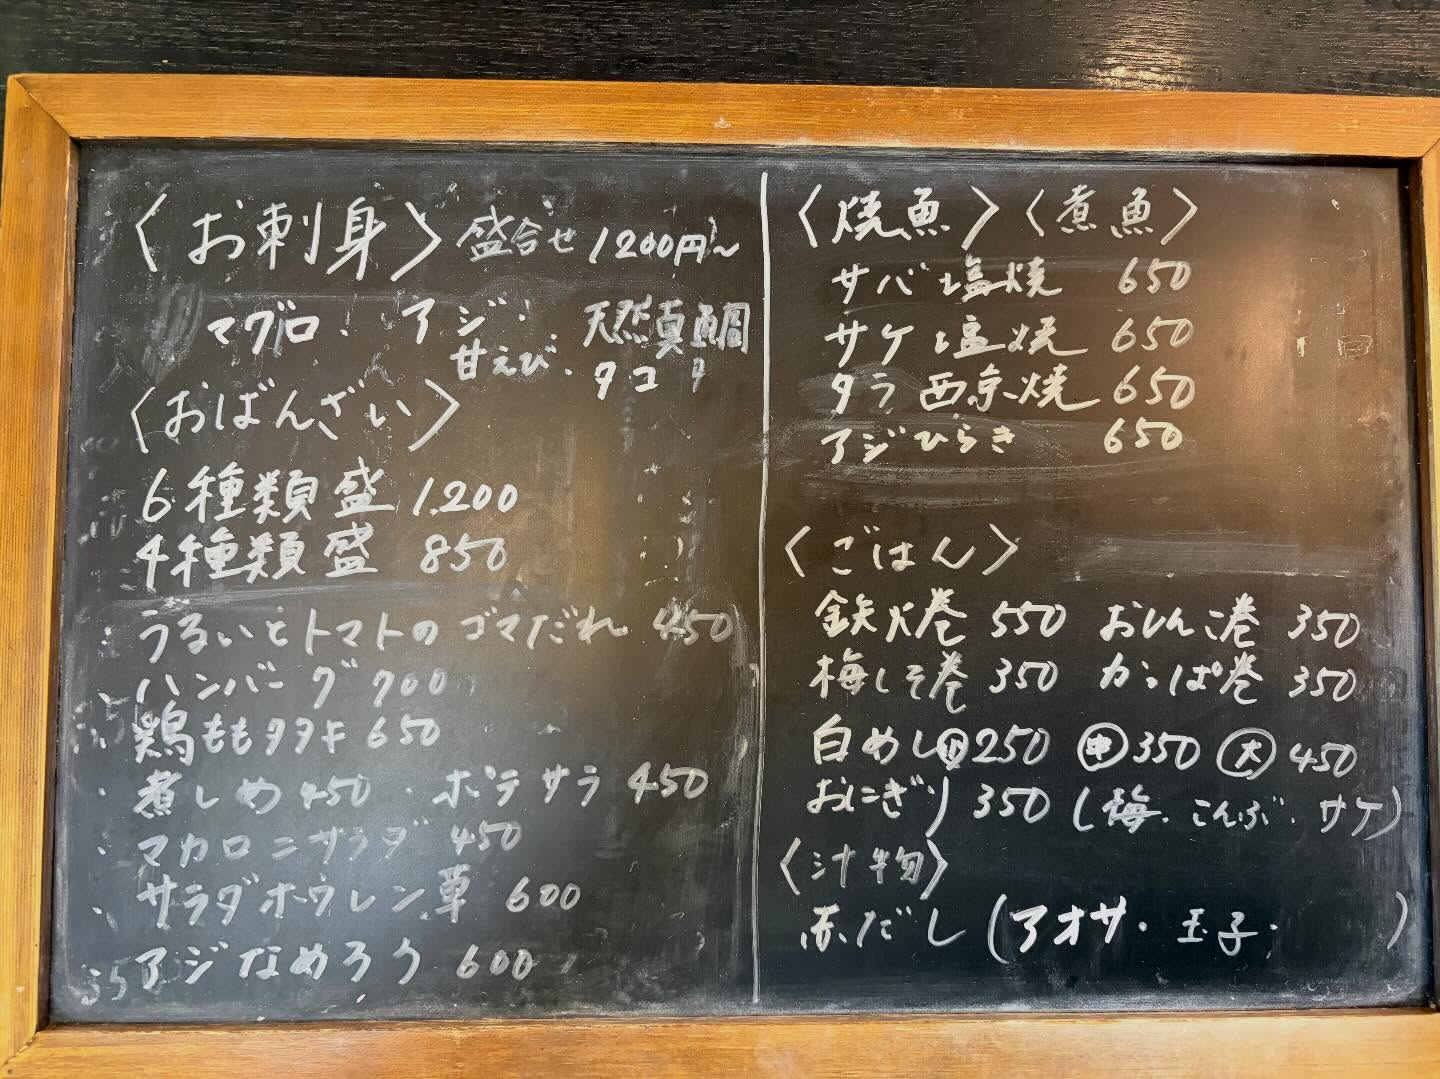 〈お刺身〉盛合せ 1200円〜
マグロ・アジ・天然真鯛
甘えび・タコ
〈おばんざい〉
6種類盛 1.200
4種類盛 850
うるいとトマトのゴマだれ 450
ハンバーグ 700
鶏ももタタキ 650
煮しめ 450・ポテサラ 450
マカロニサラダ 450
サラダホウレン草 600
アジなめろう 600
〈焼魚〉〈煮魚〉
サバ塩焼 650
サケ塩焼 650
タラ西京焼 650
アジひらき 650
〈ごはん〉
鉄火巻 550 おしんこ巻 350
梅しそ巻 350 かっぱ巻 350
白めし㊙小250 ㊥350 大 450
おにぎり 350 (梅・こんぶ・サケ)
〈汁物〉
赤だし (アオサ・玉子・ )